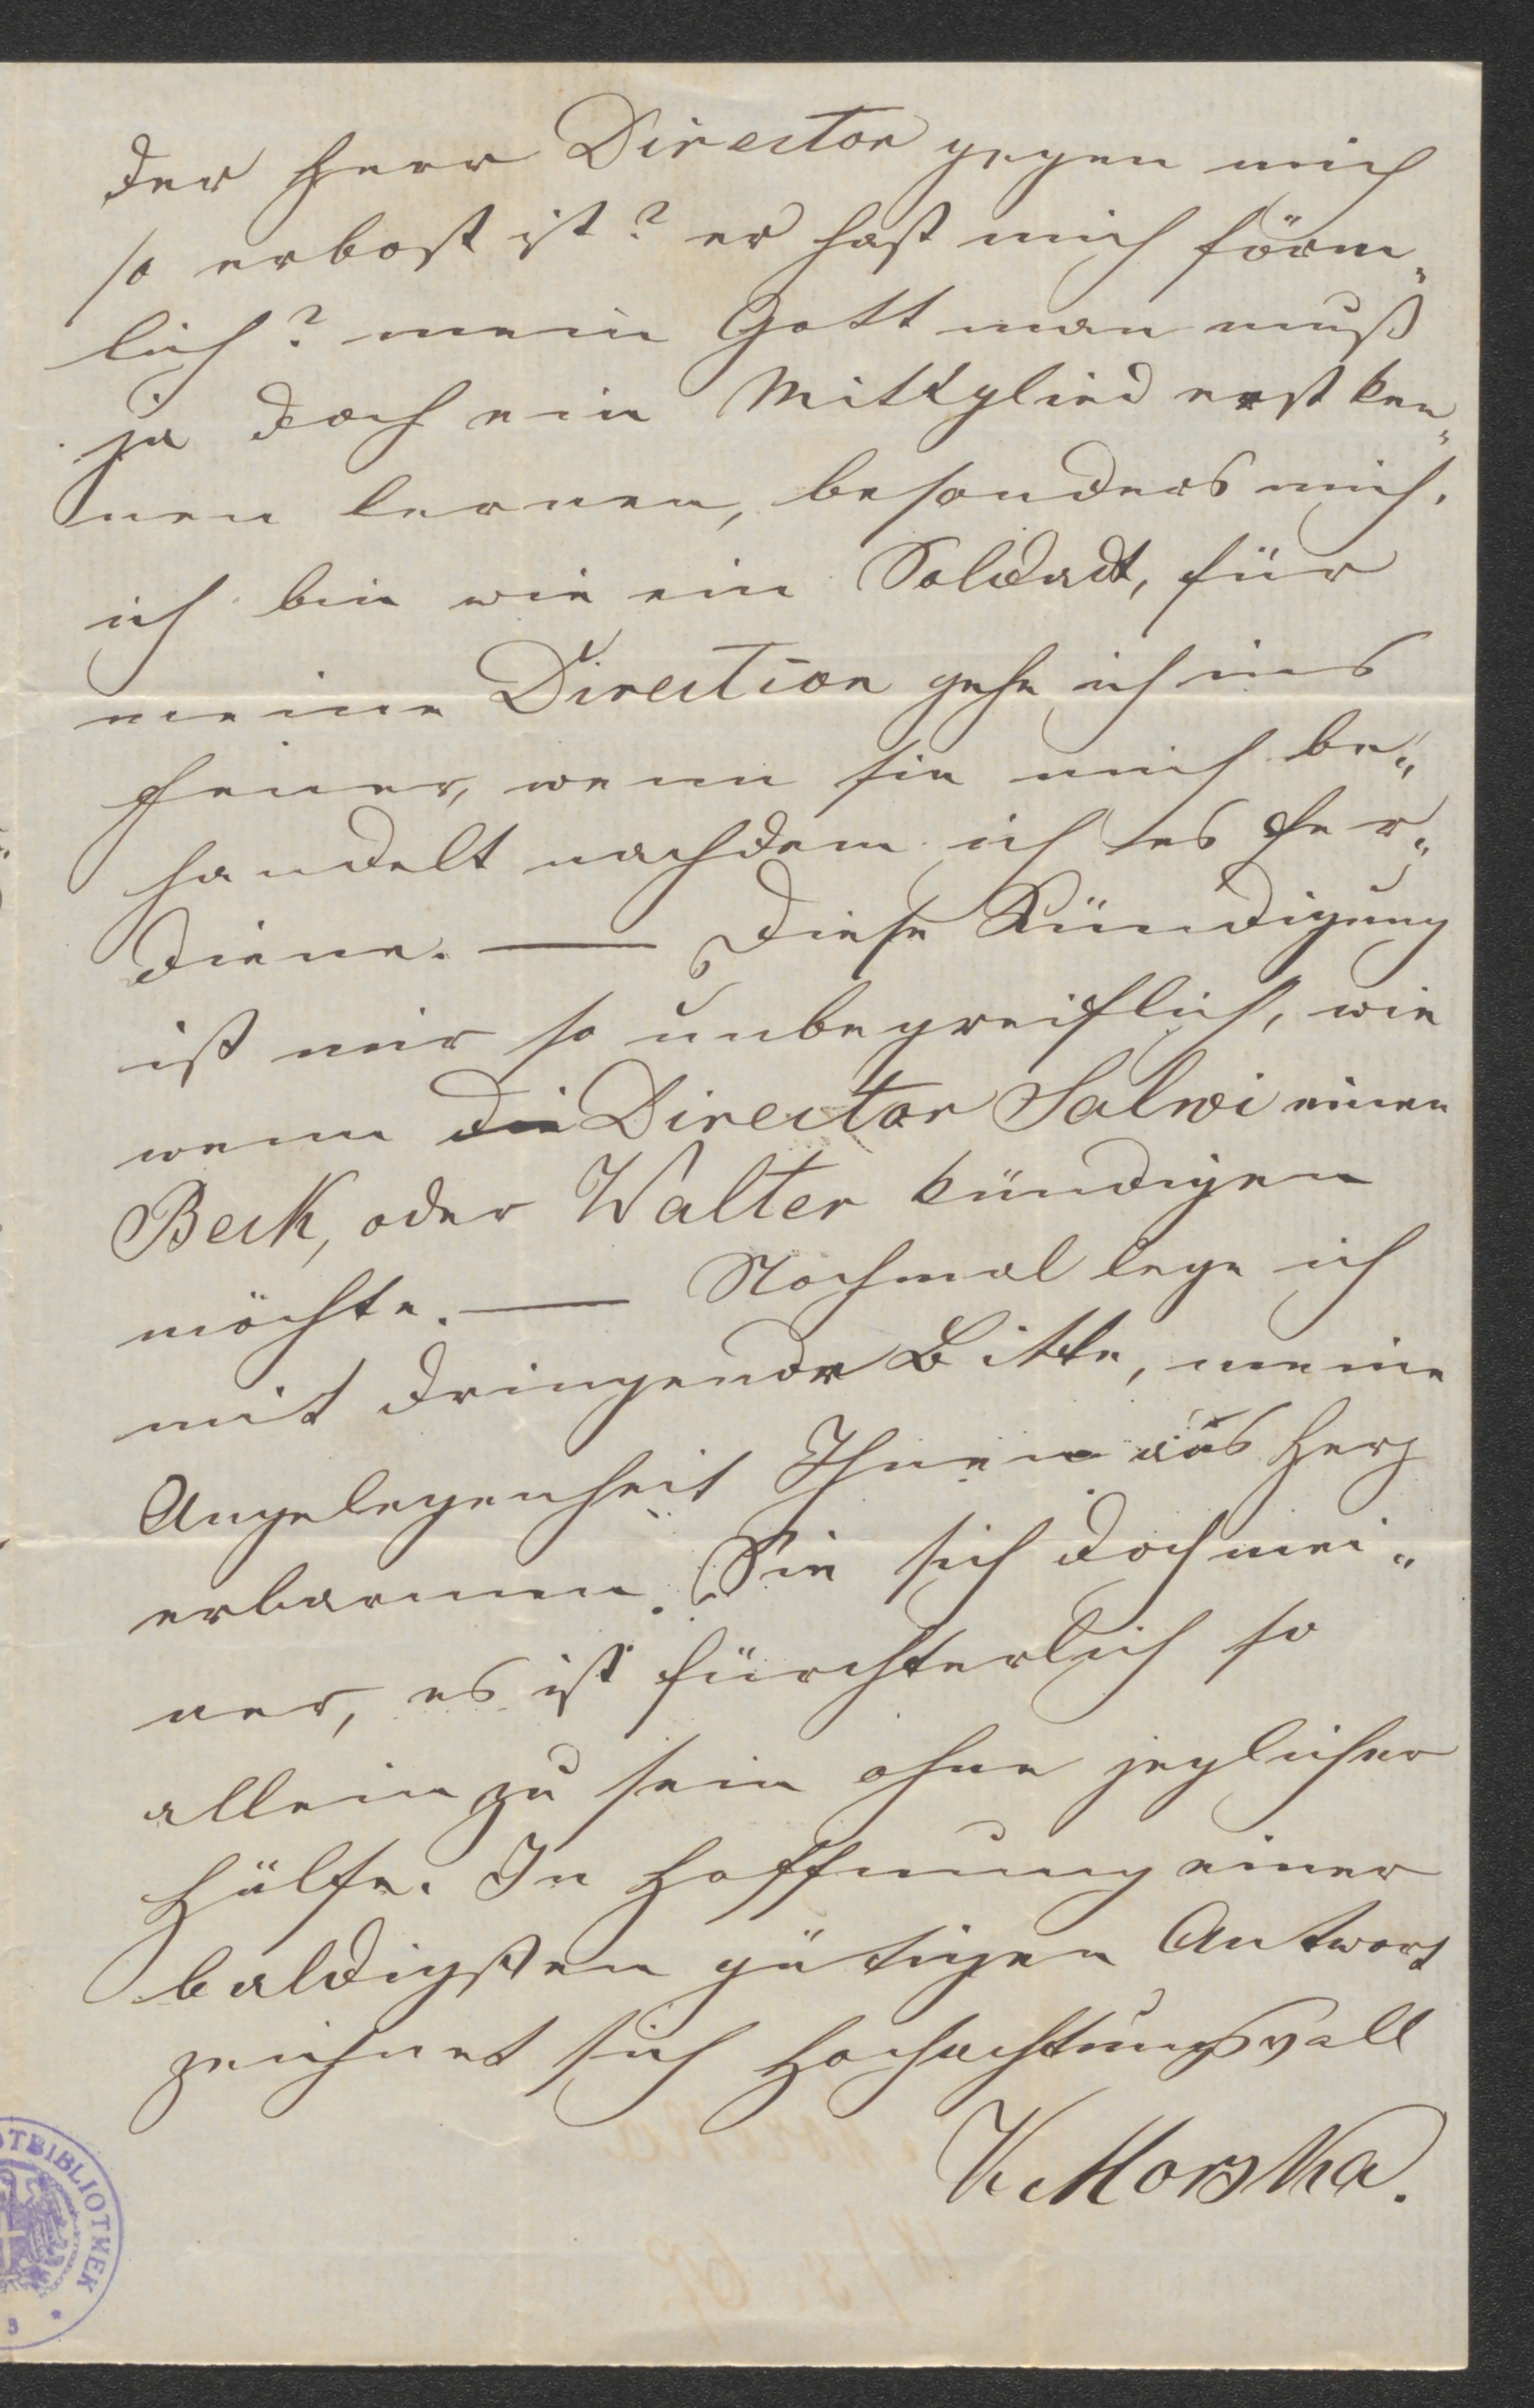 der Herr Director gegen mich
so erbost ist? er hast mich förm„
lich? mein Gott man muß
ja doch ein Mittglied erst ken„
nen lernen, besonders mich.
ich bin wie ein Soldadt, für
meine Direction gehe ich ins
Feuer, wenn sie mich be„
handelt nachdem ich es fer„
diene. — Diese Kündigung
ist mir so unbegreiflich, wie
wenn die Director Salvi einen
Beck, oder Walter kündigen
möchte. — Nochmal lege ich
mit dringender Bitte, meine
Angelegenheit Ihnen ans Herz
erbarmen Sie sich doch mei„
ner, es ist fürchterlich so
allein zu sein ohne jeglicher
Hülfe. In Hoffnung einer
baldigsten gütigen Antwort
zeichnet sich Hochachtungsvoll
K Morska.
OTBIBLIOTHEK